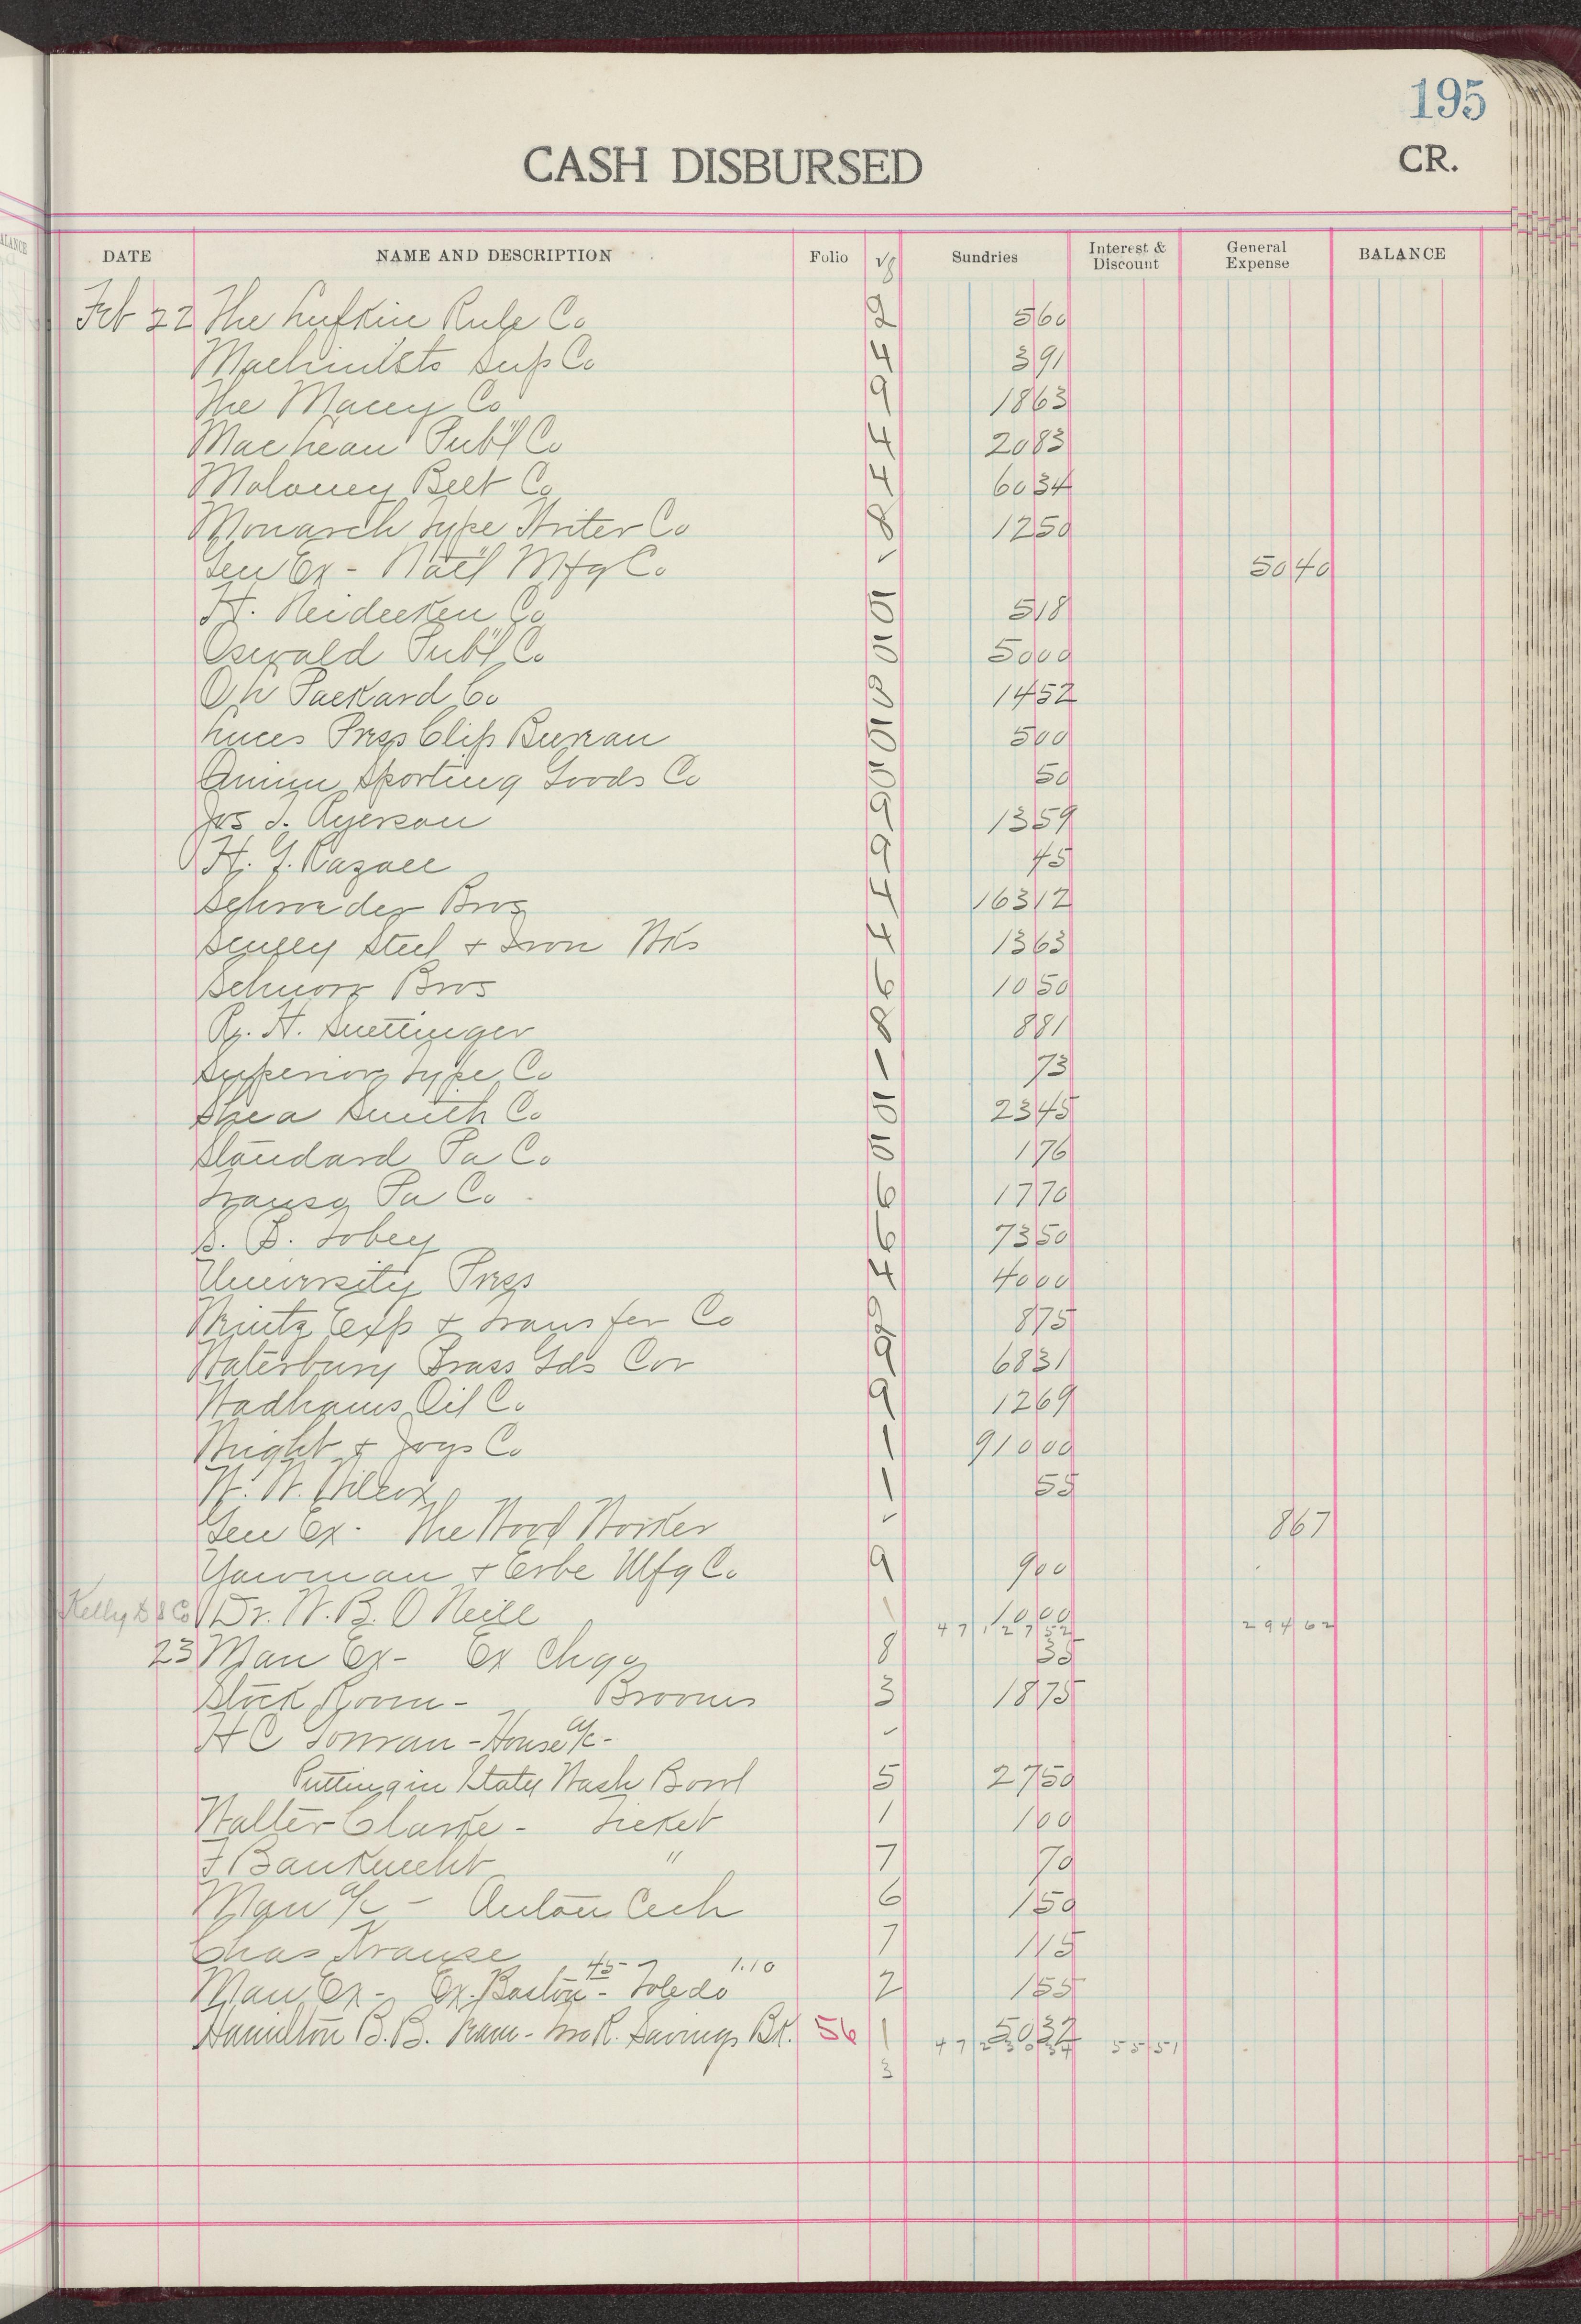 195
CASH DISBURSED
CR.
DATE NAME AND DESCRIPTION Folio √g Sundries Interest & Discount General Expense BALANCE
Feb 22 The Lufkin Rule Co 2 5 60
Machinists Sup Co 4 3 91
The Macey Co 9 18 63
MacLean Pub'l Co 4 20 83
Moloney Belt Co 4 60 34
Monarch Type Writer Co 8 12 50
Gen Ex - Nat'l Mfg Co ✓ 50 40
H. Neidecken Co 5 5 18
Oswald Pub'l Co 5 50 00
O L Packard Co 8 14 52
Luces Press Clip Bureau 5 5 00
Amn Sporting Goods Co 5 50
Jos T. Ryerson 9 13 59
H. G. Razall 9 45
Schroeder Bros 4 163 12
Scully Steel & Iron Wks 4 13 63
Schnorr Bros 6 10 50
R. H. Suettinger 8 8 81
Superior Type Co 1 73
Shea Smith Co 5 23 45
Standard Pa Co 5 1 76
Transo Pa Co 6 17 70
S. B. Tobey 6 73 50
University Press 4 40 00
Exp & Transfer Co 8 8 75
Waterbury Brass Gds Cor 9 68 31
Wadhams Oil Co 9 12 69
Wright & Joys Co 1 910 00
W. W. Wilcox 1 55
Gen Ex - The Wood Worker ✓ 8 67
Yawman & Erbe Mfg Co 9 9 00
Kelly D & Co Dr. W. B. O Neill 1 10 00
47 127 52 294 62
23 Man Ex - Ex Chgs 8 35
Stock Room - Brooms 3 18 75
H C Gonran - House a/c - ✓
Putting in Staty Wash Bowl 5 27 50
Walter Clarke - Ticket 1 1 00
F Bauknecht " 7 70
Man a/c - Anton Cech 6 1 50
Chas Krause 7 1 15
Man Ex - Ex. Boston - 45 Toledo 1.10 2 1 55
Hamilton B.B. Savings Bk. 56 1 50 32
47 230 34 55 51
3